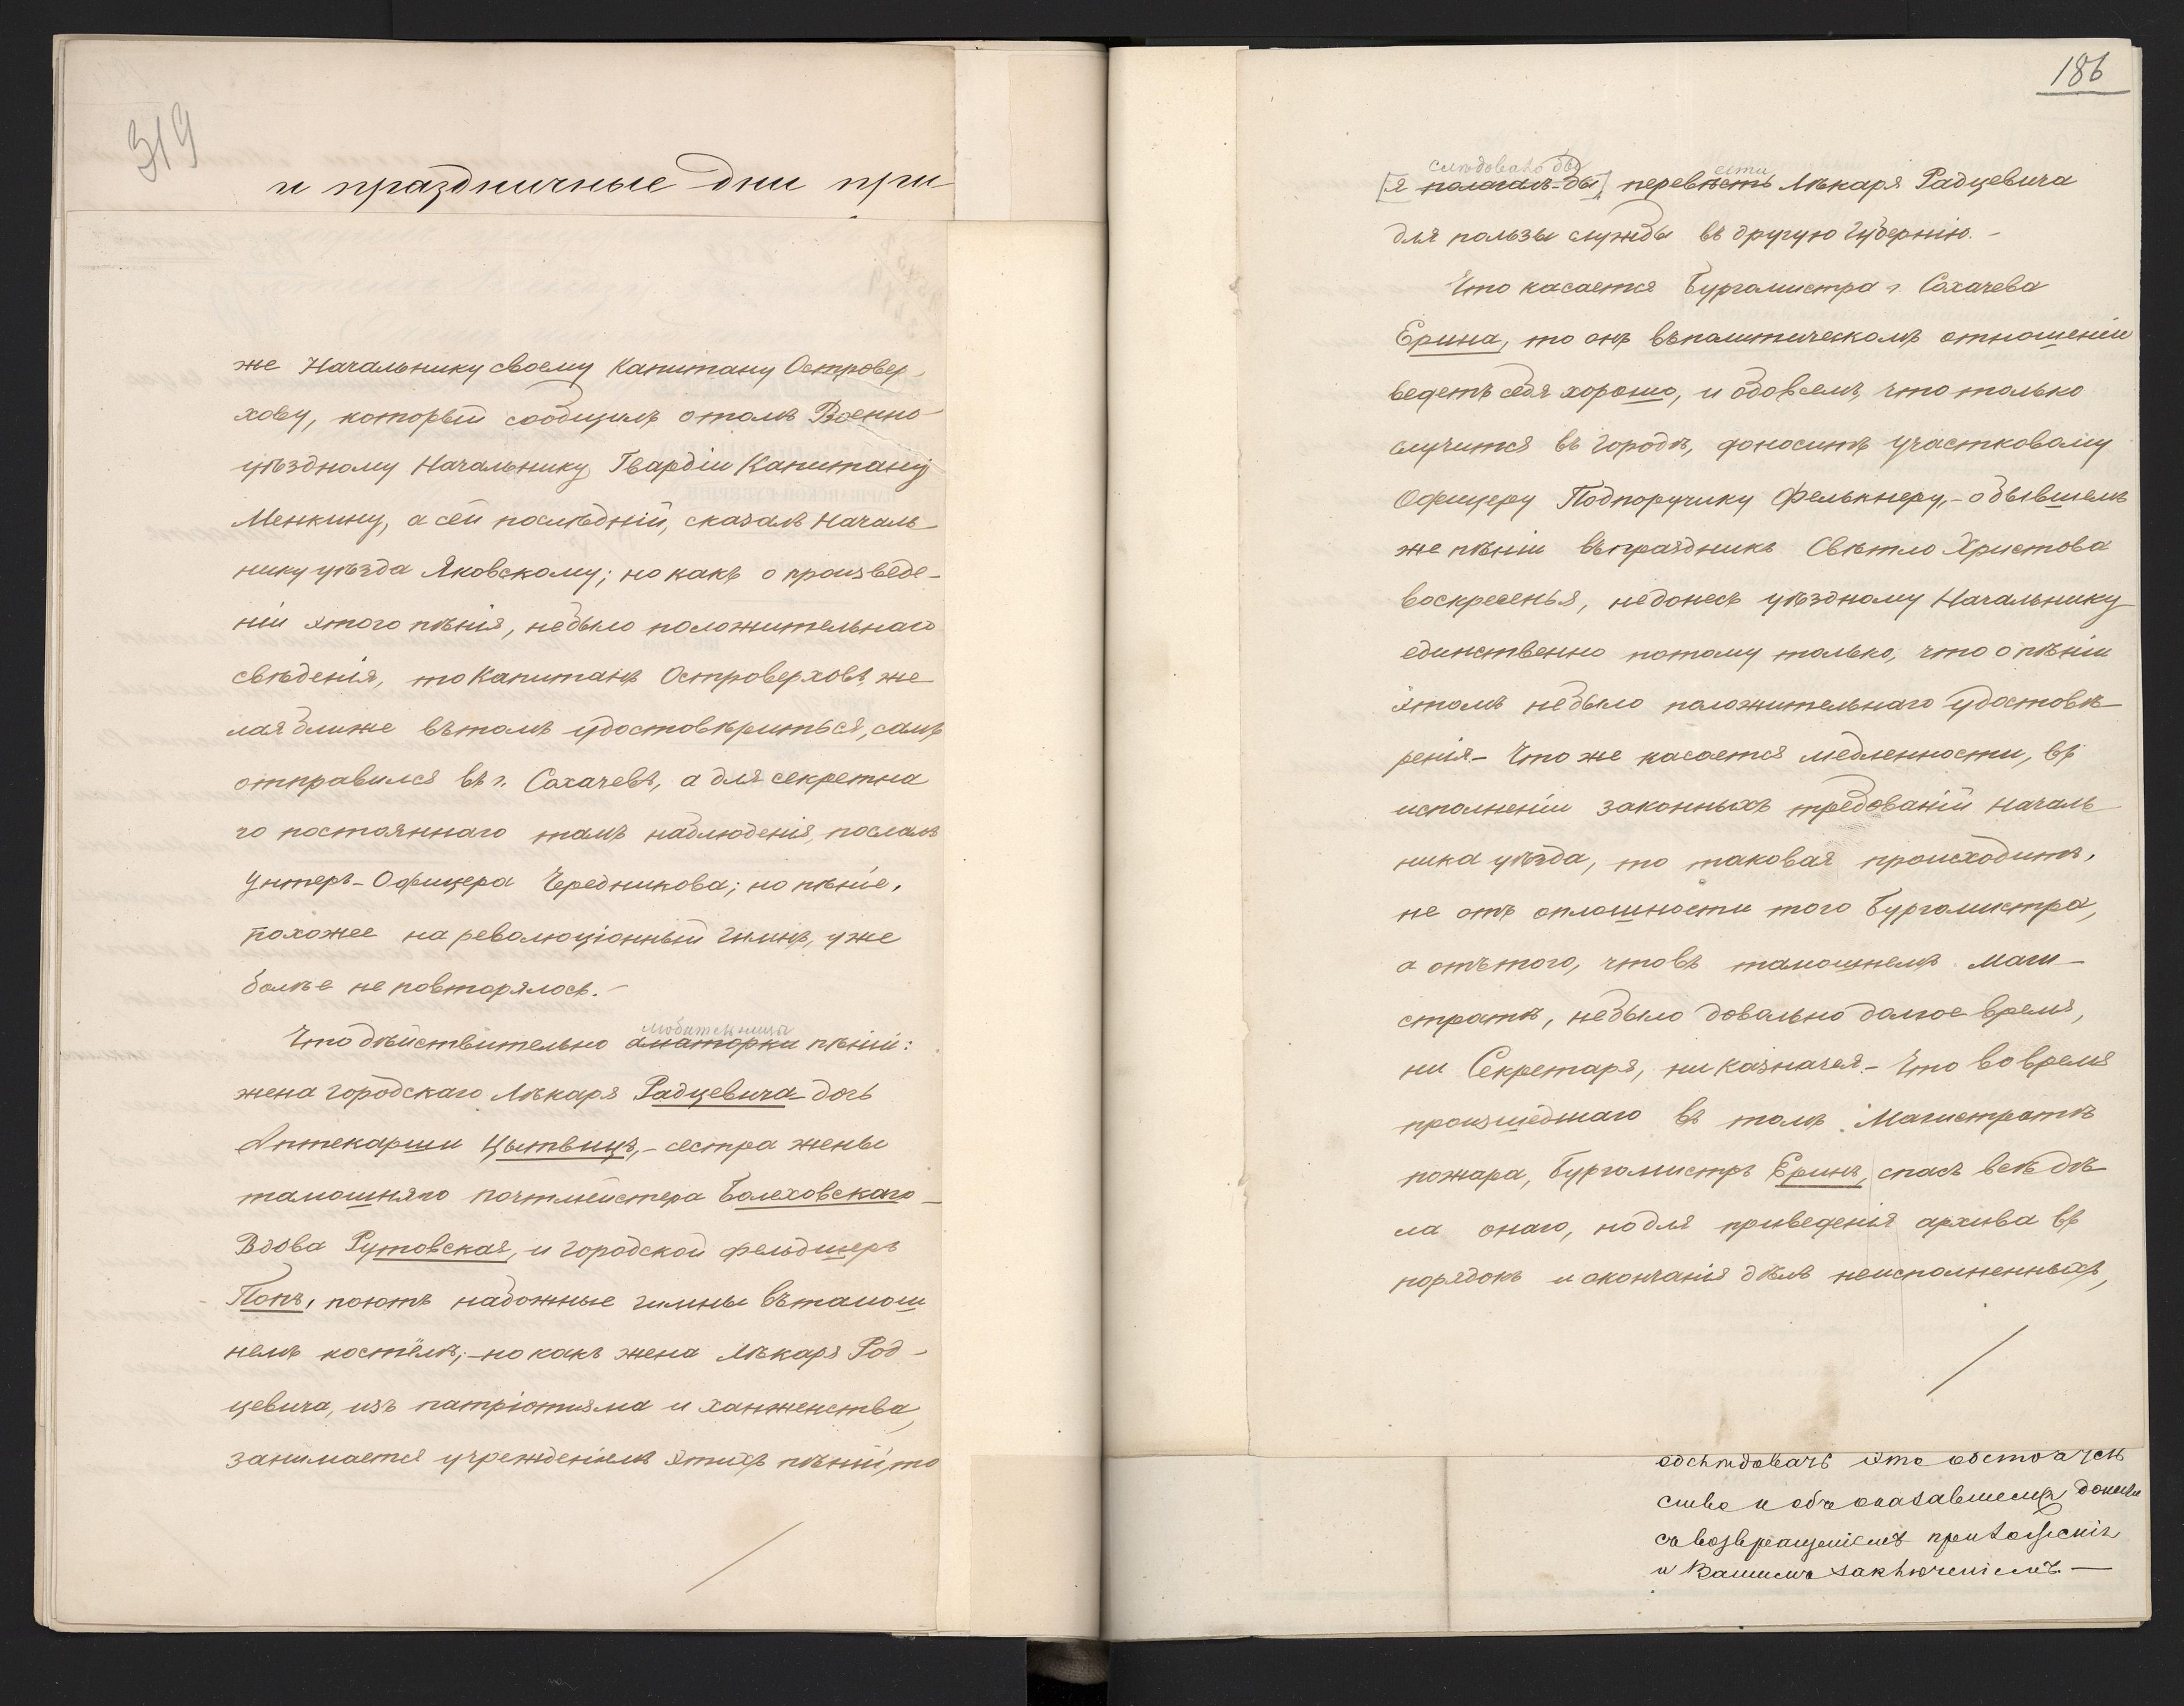 319
и праздничные дни при
же Начальнику своему Капитану Островер-
хову, который сообщилъ о томъ Военно-
уѣздному Начальнику Гвардіи Капитану
Менкину, а сей послѣдній, сказалъ Началь-
нику уѣзда Яковскому; но какъ о произведе-
ніи этого пѣнія, небыло положительнаго
свѣденія, то Капитанъ Островерховъ, же
лая ближе въ томъ удостовѣриться, самъ
отправился въ г. Сохачевъ, а для секретна
го постояннаго тамъ наблюденія, послалъ
Унтеръ-Офицера Чередникова; но пѣніе,
похожее на революціонный гимнъ, уже
болѣе не повторялось.-
любительницы
Что дѣйствительно аматорки пѣній:
жена городскаго Лѣкаря Радцевича - дочь
Аптекарши Цытвицъ, - сестра жены
тамошняго почтмейстера Болеховскаго -
Вдова Рутовская, и городской фельдшеръ
Попъ, поютъ набожные гимны въ тамош
немъ костёлѣ; - но какъ жена Лѣкаря Род-
цевича, изъ патріотизма и ханженства,
занимается учрежденіемъ этихъ пѣній, то
186
слѣдовало бы ести
[я полагалъ-бы] перевѣсть Лѣкаря Радцевича
для пользы службы въ другую Губернію.-
Что касается Бургомистра г. Сохачева
Ерина, то онъ въ политическомъ отношеніи
ведетъ себя хорошо, и обо всемъ, что только
случится въ городѣ, доноситъ участковому
Офицеру Подпоручику Фелькнеру, - о бывшемъ
же пѣніи въ праздникъ Свѣтло Христова
воскресенья, недонесъ уѣздному Начальнику
единственно потому только, что о пѣніи
этомъ небыло положительнаго удостовѣ-
ренія - Что же касается медленности, въ
исполненіи законныхъ требованій Началь
ника уѣзда, то таковая происходитъ,
не отъ оплошности того Бургомистра,
а отъ того, что въ тамошнемъ маги-
стратѣ, небыло довольно долгое время,
ни Секретаря, ни Казначея. - Что во время
произшедшаго въ томъ Магистратѣ
пожара, Бургомистръ Еринъ, спасъ всѣ дѣ-
ла онаго, но для приведенія архива въ
порядокъ и окончанія дѣлъ неисполненныхъ,
обслѣдовать это обстоятель
ство и объ оказавшемся донести
съ возвращеніемъ приложенія
и Вашимъ заключеніемъ —